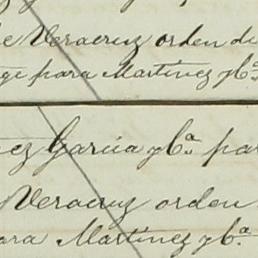 de Veracruz orden de
ge para Martinez y Ca.
ez Garcia y Ca. par
Veracruz orden
ara Martinez y Ca.